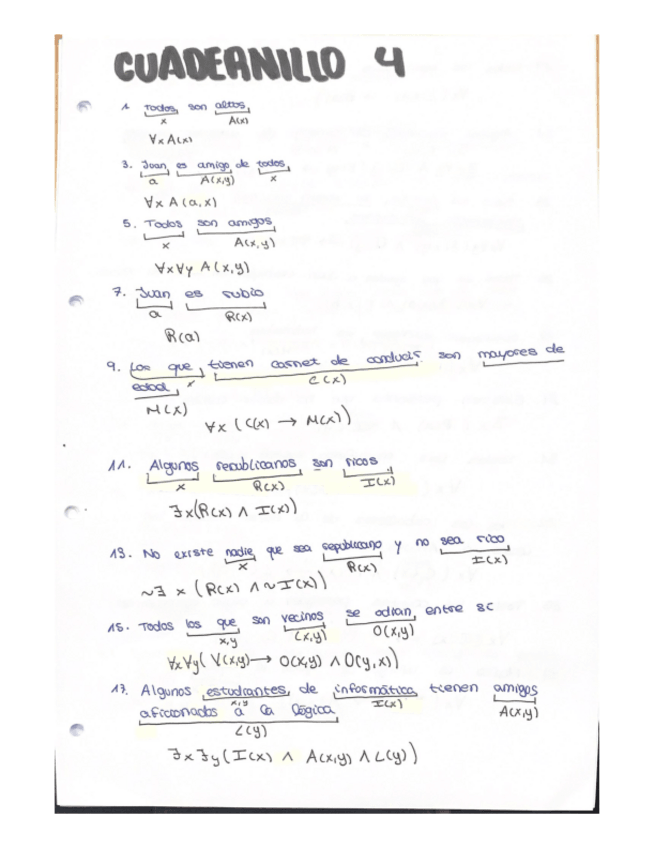 CUADERNILLO 4
1 Todos son altos
x A(x)
∀x A(x)
3. Juan es amigo de todos
a A(x,y) x
∀x A(a,x)
5. Todos son amigos
x A(x,y)
∀x∀y A(x,y)
7. Juan es rubio
a R(x)
R(a)
9. Los que tienen carnet de conducir son mayores de
x C(x)
edad
M(x)
∀x (C(x) → M(x))
11. Algunos republicanos son ricos
x R(x) I(x)
∃x(R(x) ∧ I(x))
13. No existe nadie que sea republicano y no sea rico
x R(x) I(x)
~∃ x (R(x) ∧ ~I(x))
15. Todos los que son vecinos se odian entre sí
x,y (x,y) O(x,y)
∀x∀y( V(x,y) → O(x,y) ∧ O(y,x))
17. Algunos estudiantes de informática tienen amigos
x,y I(x) A(x,y)
aficionados a la lógica
L(y)
∃x ∃y (I(x) ∧ A(x,y) ∧ L(y))